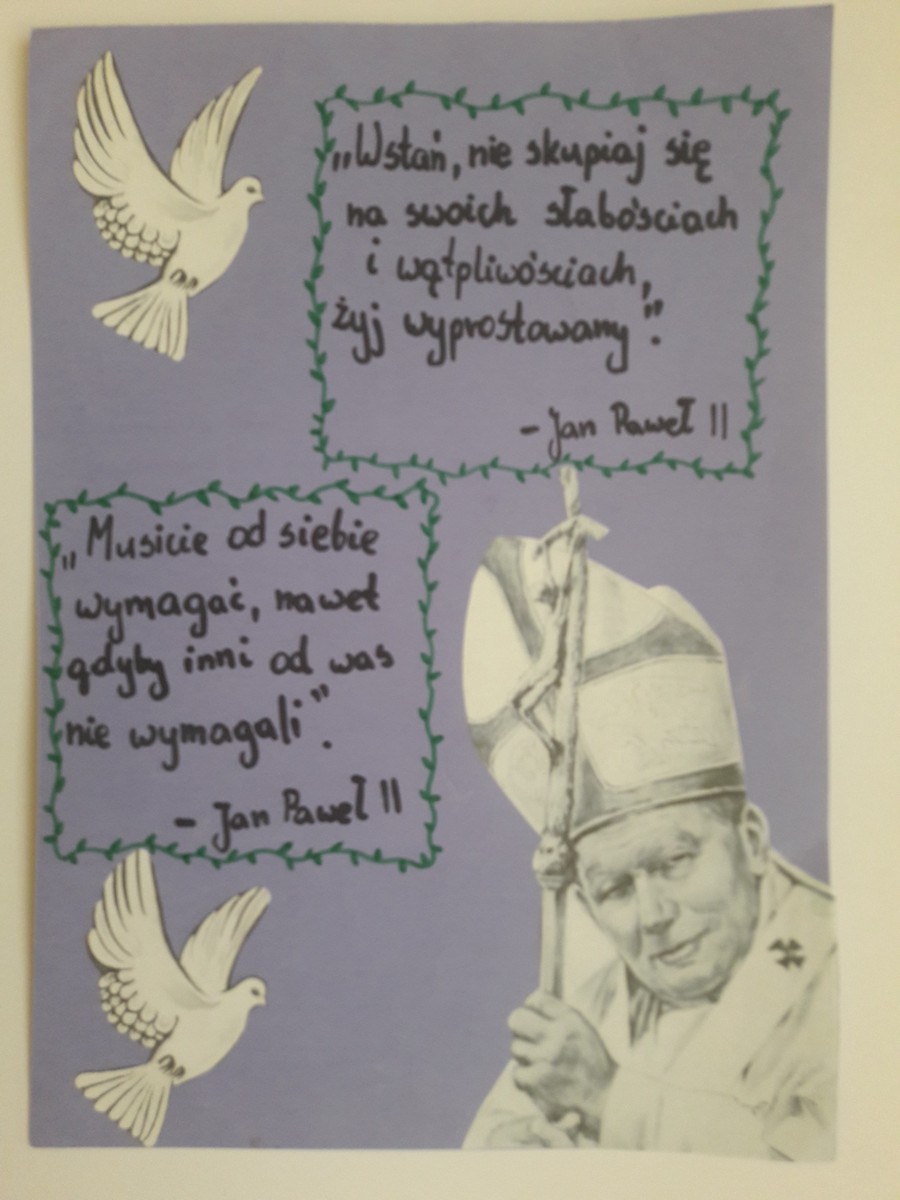 „Wstań, nie skupiaj się
na swoich słabościach
i wątpliwościach,
żyj wyprostowany”.
- Jan Paweł II
„Musicie od siebie
wymagać, nawet
gdyby inni od was
nie wymagali”.
- Jan Paweł II